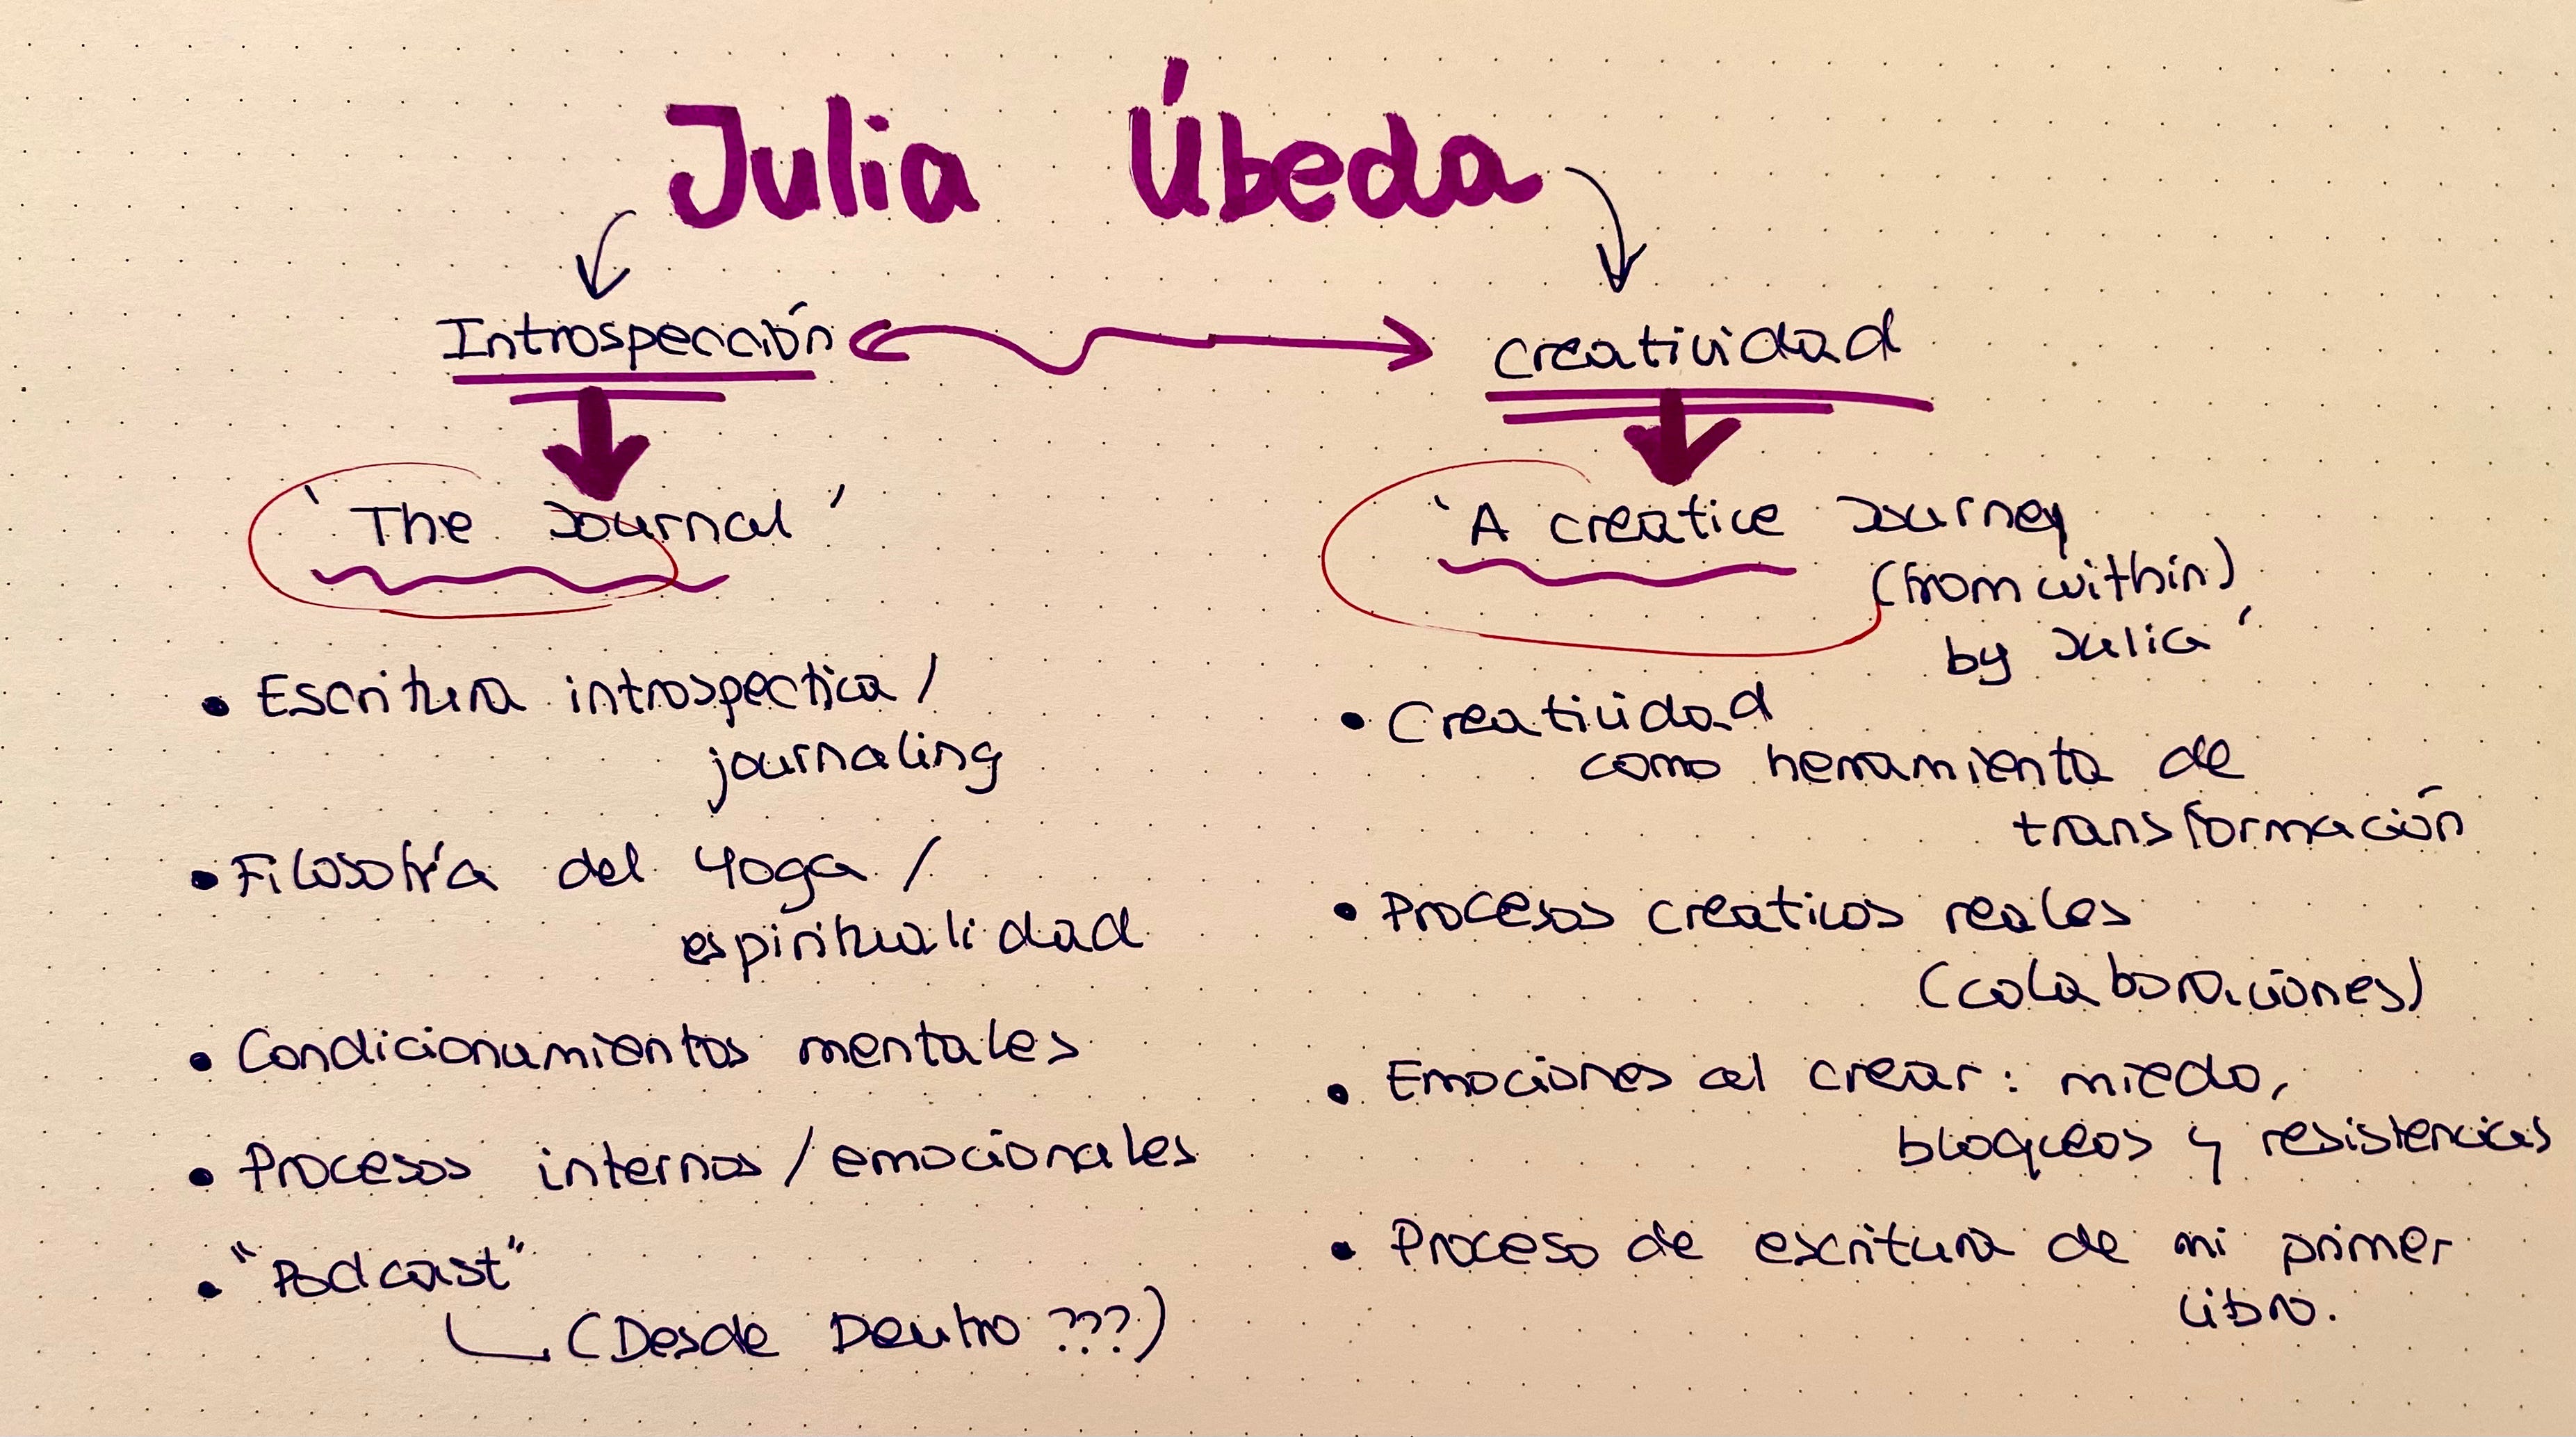 Julia Úbeda
Introspección
Creatividad
'The Journal'
'A creative Journey
(from within)
by Julia'
• Escritura introspectiva /
journaling
• Filosofía del Yoga /
espiritualidad
• Condicionamientos mentales
• Procesos internos / emocionales
• "Podcast"
(Desde Dentro ???)
• Creatividad
como herramienta de
transformación
• Procesos creativos reales
(colaboraciones)
• Emociones al crear: miedo,
bloqueos y resistencias
• Proceso de escritura de mi primer
libro.